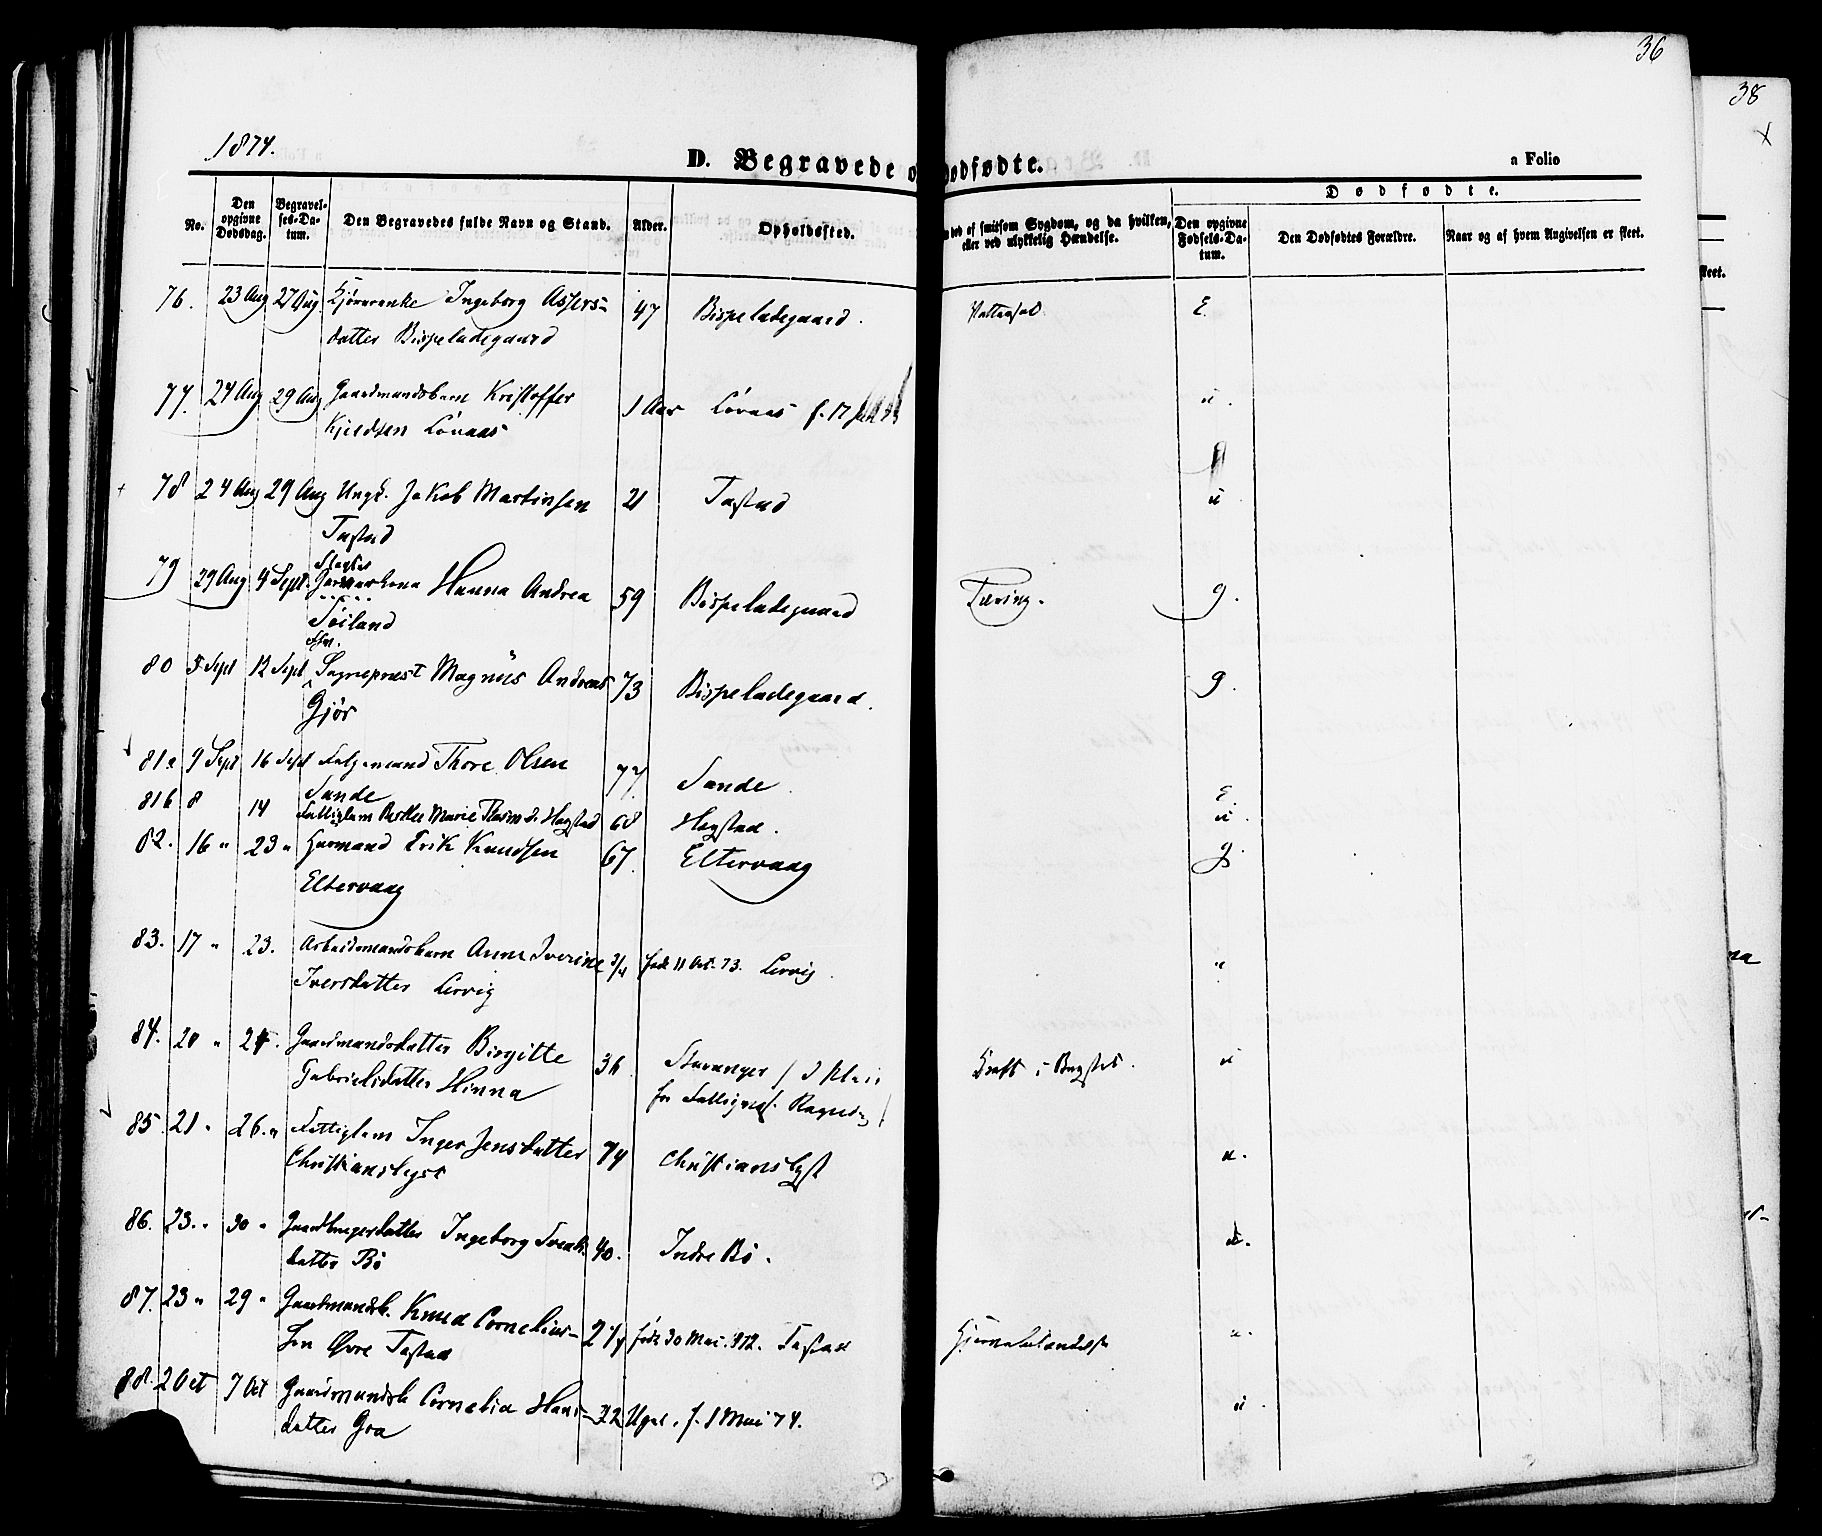 36
38
1874.
D. Begravede o
Dødfødte.
a Folio
No.
Den opgivne Dødsdag.
Begravelses-Datum.
Den Begravedes fulde Navn og Stand.
Alder.
Opholdssted.
ved af smitsom Sygdom, og da hvilken, eller ved ulykkelig Hændelse.
Dødfødte.
Den opgivne Fødsels-Datum.
Den Dødfødtes Forældre.
Naar og af hvem Angivelsen er skeet.
76. 23 Aug 27 Aug Ingeborg Asjers- 47 Bispeladegaard. Vattersot. E.
datter Bispeladegaard
77. 24 Aug 29 Aug Gaardmandsbarn Kristoffer 1 Aar f. 17 u.
Kjeldsen
78 24 Aug 29 Aug Ungk. Jakob Martinsen 21 Tastad u
Tastad
79 29 Aug 4 Sept Hanna Andrea 59 Bispeladegaard Tæring. g.
Soiland
80 5 Sept 12 Sept Sognepræst Magnus Andreas 73 Bispeladegaard. g.
Gjør
81a 9 Sept 16 Sept Thore Olsen 77 Sande
Sande E.
81b 8 14 Fattiglem Marie Hogstad 68 Hogstad. u.
82. 16 " 23 " Huusmand Erik Knudsen 67. Eltervaag g.
Eltervaag
83. 17 " 23. Arbeidsmandsbarn Anne Iverine 3/4 født 11 Oct. 73. Lervig. "
Iversdatter Lervig
84. 20 " 24. Gaardmandsdatter Birgitte 36 Stavanger Kræft i Brystet. u
Gabrielsdatter Hinna for
85. 21 " 26. " Fattiglem Inger Jensdatter 74 Christianslyst u.
Christianslyst
86. 23. " 30 " Ingeborg 40. Indre Bø. u.
datter Bø
87. 23 " 29 " Gaardmandsb. Knud Cornelius- 2 1/4 født 30 Mai. 1872. Tastad Hjernebetændelse u.
sen Øvre Tastad
88. 2 Oct 7 Oct Gaardmandsb Cornelia Hans- 22 Uger. f. 1 Mai 74. u.
datter Goa